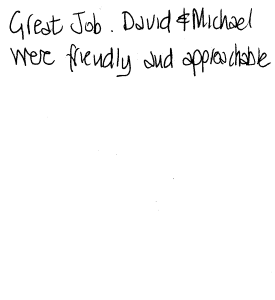 Great Job. David & Michael
were friendly and approachable